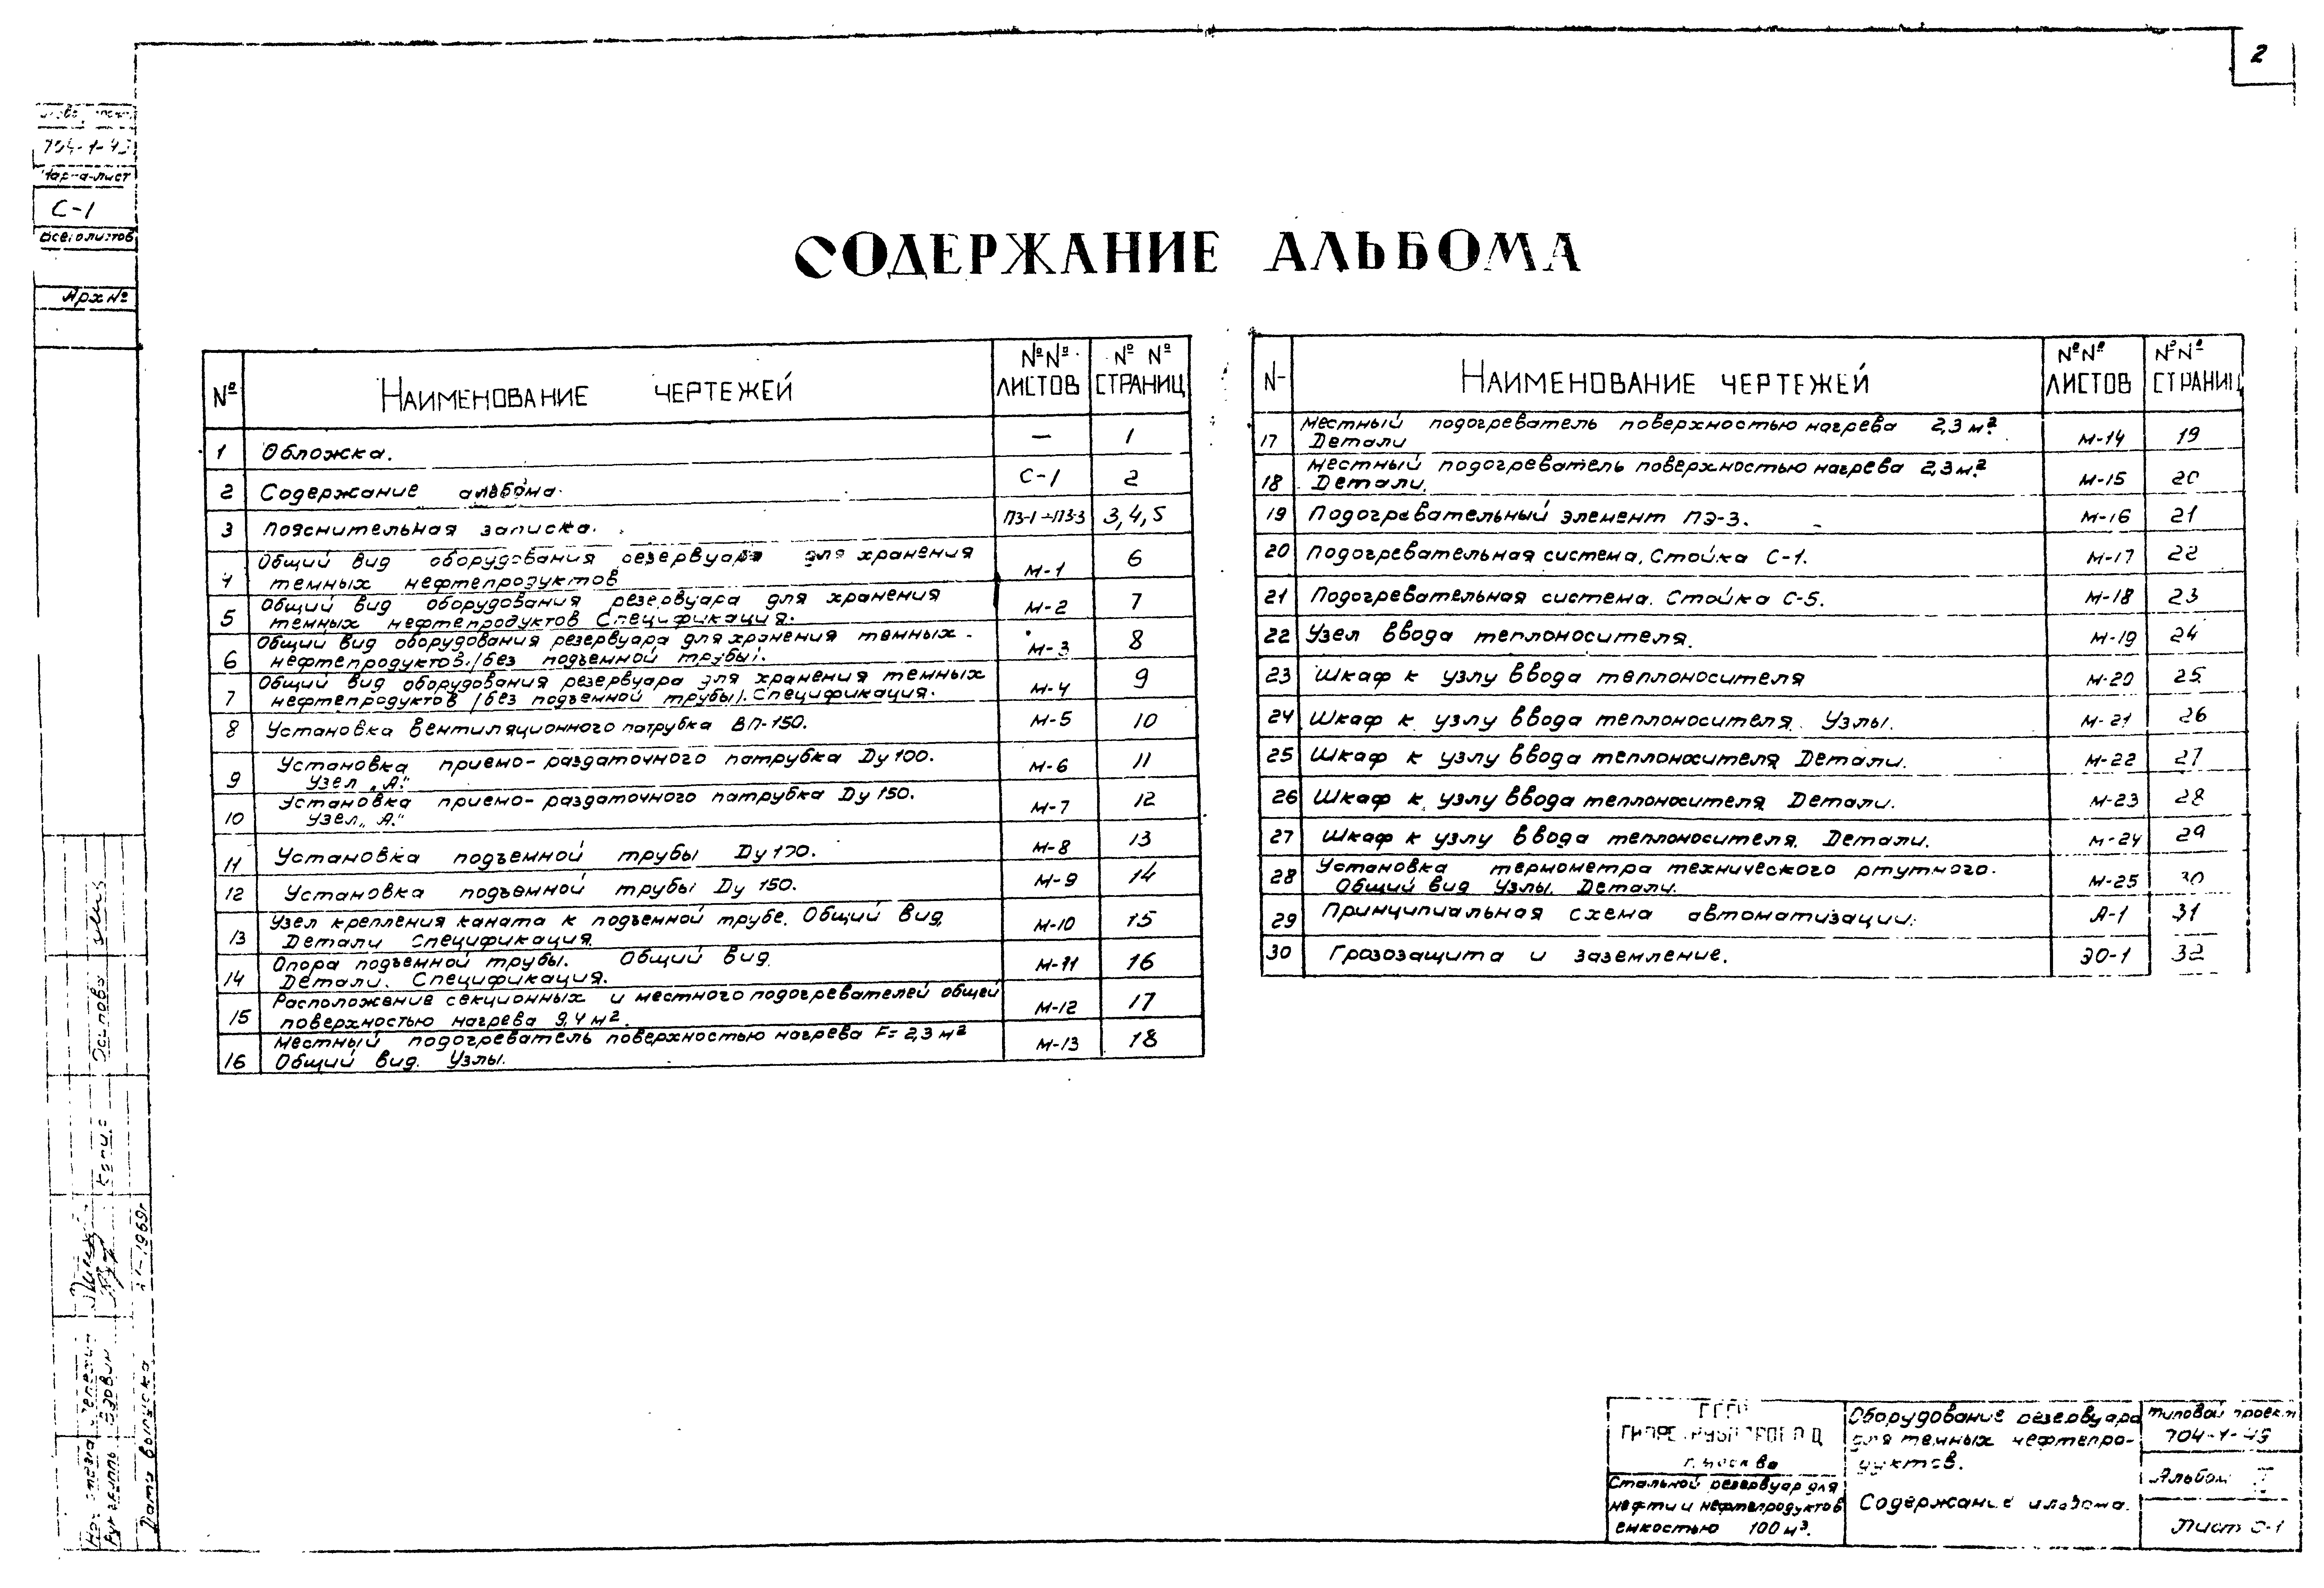 2
704-1-49
Марка-лист
С-1
Всего листов
Арх №
СОДЕРЖАНИЕ АЛЬБОМА
№ НАИМЕНОВАНИЕ ЧЕРТЕЖЕЙ №№ ЛИСТОВ №№ СТРАНИЦ
1 Обложка. — 1
2 Содержание альбома. С-1 2
3 Пояснительная записка. ПЗ-1÷ПЗ-3 3,4,5
4 Общий вид оборудования резервуара для хранения
темных нефтепродуктов М-1 6
5 Общий вид оборудования резервуара для хранения
темных нефтепродуктов Спецификация. М-2 7
6 Общий вид оборудования резервуара для хранения темных
нефтепродуктов. /без подъемной трубы/. М-3 8
7 Общий вид оборудования резервуара для хранения темных
нефтепродуктов /без подъемной трубы/. Спецификация. М-4 9
8 Установка вентиляционного патрубка ВП-150. М-5 10
9 Установка приемо-раздаточного патрубка Dу 100.
Узел „А." М-6 11
10 Установка приемо-раздаточного патрубка Dу 150.
Узел „А." М-7 12
11 Установка подъемной трубы Dу 100. М-8 13
12 Установка подъемной трубы Dу 150. М-9 14
13 Узел крепления каната к подъемной трубе. Общий вид.
Детали Спецификация. М-10 15
14 Опора подъемной трубы. Общий вид.
Детали. Спецификация. М-11 16
15 Расположение секционных и местного подогревателей общей
поверхностью нагрева 9,4 м². М-12 17
16 Местный подогреватель поверхностью нагрева F= 2,3 м²
Общий вид. Узлы. М-13 18
N- НАИМЕНОВАНИЕ ЧЕРТЕЖЕЙ №№ ЛИСТОВ №№ СТРАНИЦ
17 Местный подогреватель поверхностью нагрева 2,3 м².
Детали М-14 19
18 Местный подогреватель поверхностью нагрева 2,3 м².
Детали. М-15 20
19 Подогревательный элемент ПЭ-3. М-16 21
20 Подогревательная система. Стойка С-1. М-17 22
21 Подогревательная система. Стойка С-5. М-18 23
22 Узел ввода теплоносителя. М-19 24
23 Шкаф к узлу ввода теплоносителя М-20 25
24 Шкаф к узлу ввода теплоносителя. Узлы. М-21 26
25 Шкаф к узлу ввода теплоносителя Детали. М-22 27
26 Шкаф к узлу ввода теплоносителя Детали. М-23 28
27 Шкаф к узлу ввода теплоносителя. Детали. М-24 29
28 Установка термометра технического ртутного.
Общий вид Узлы. Детали. М-25 30
29 Принципиальная схема автоматизации. А-1 31
30 Грозозащита и заземление. ЭО-1 32
Осипова
Копир.
1969г
Дата выпуска
г. Москва
Стальной резервуар для
нефти и нефтепродуктов
емкостью 100 м³.
Оборудование резервуара
для темных нефтепро-
дуктов.
Содержание альбома.
Типовой проект
704-1-49
Альбом
Лист С-1